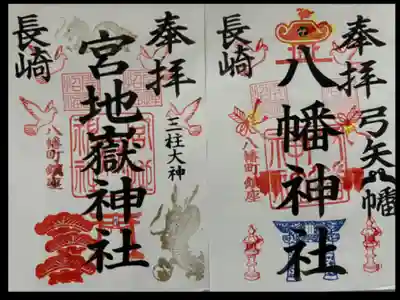 奉拝
三柱大神
宮地嶽神社
長崎
八幡町鎮座
奉拝
弓矢八幡
八幡神社
長崎
八幡町鎮座